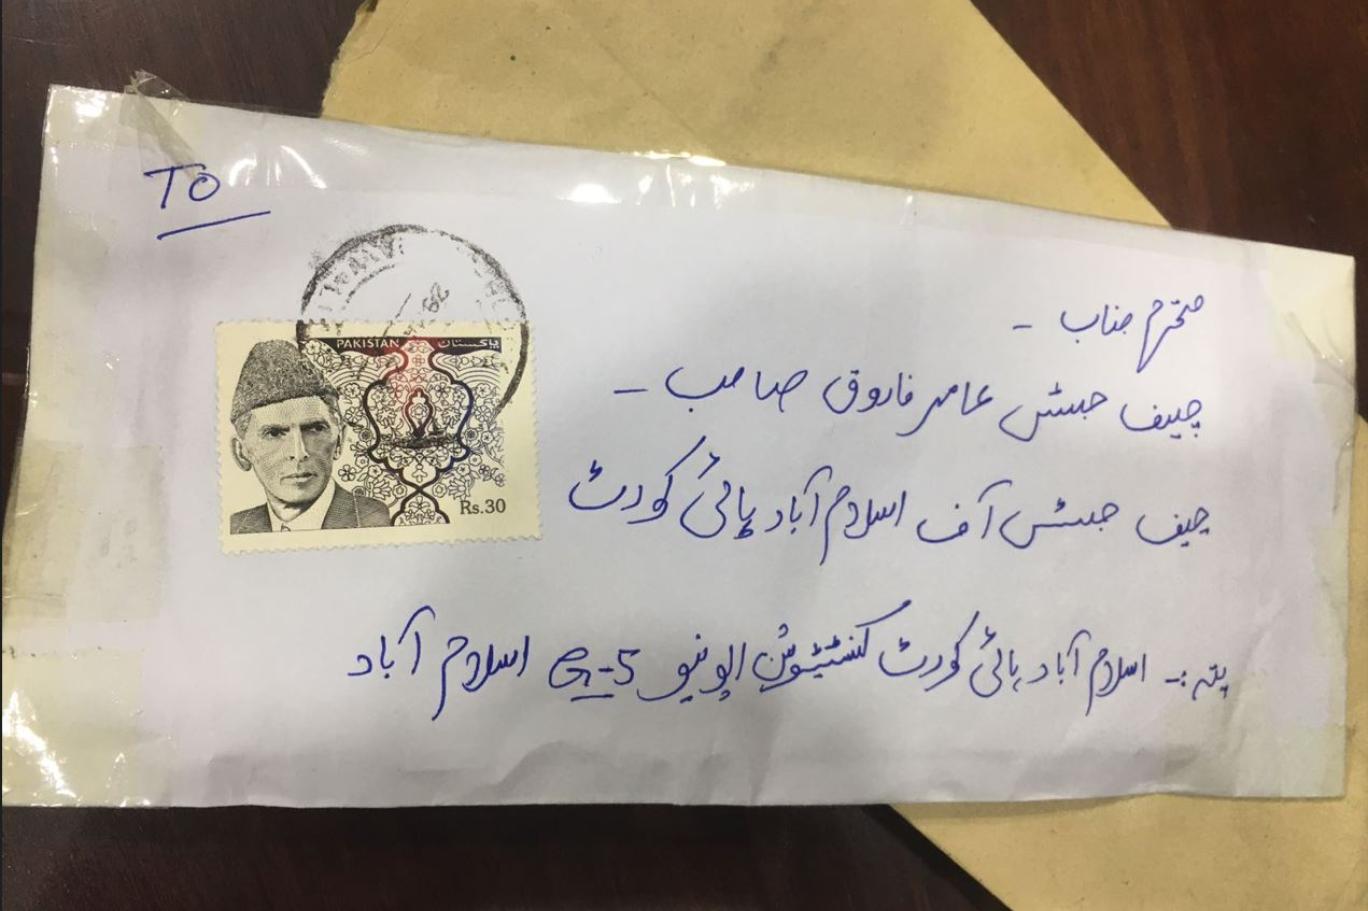 TO
PAKISTAN پاکستان
Rs.30
محترم جناب -
چیف جسٹس عامر فاروق صاحب -
چیف جسٹس آف اسلام آباد ہائی کورٹ
پتہ :- اسلام آباد ہائی کورٹ کنسٹیٹیوشن ایونیو G-5 اسلام آباد